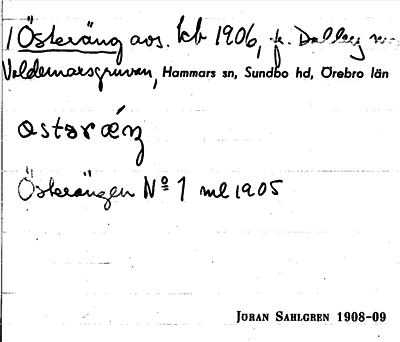 1 Österäng avs. kb 1906, f. Dalby
Valdemarsgruvan, Hammars sn, Sundbo hd, Örebro län
ostəræŋ
Österängen Nº 1 ml 1905
JÖRAN SAHLGREN 1908-09